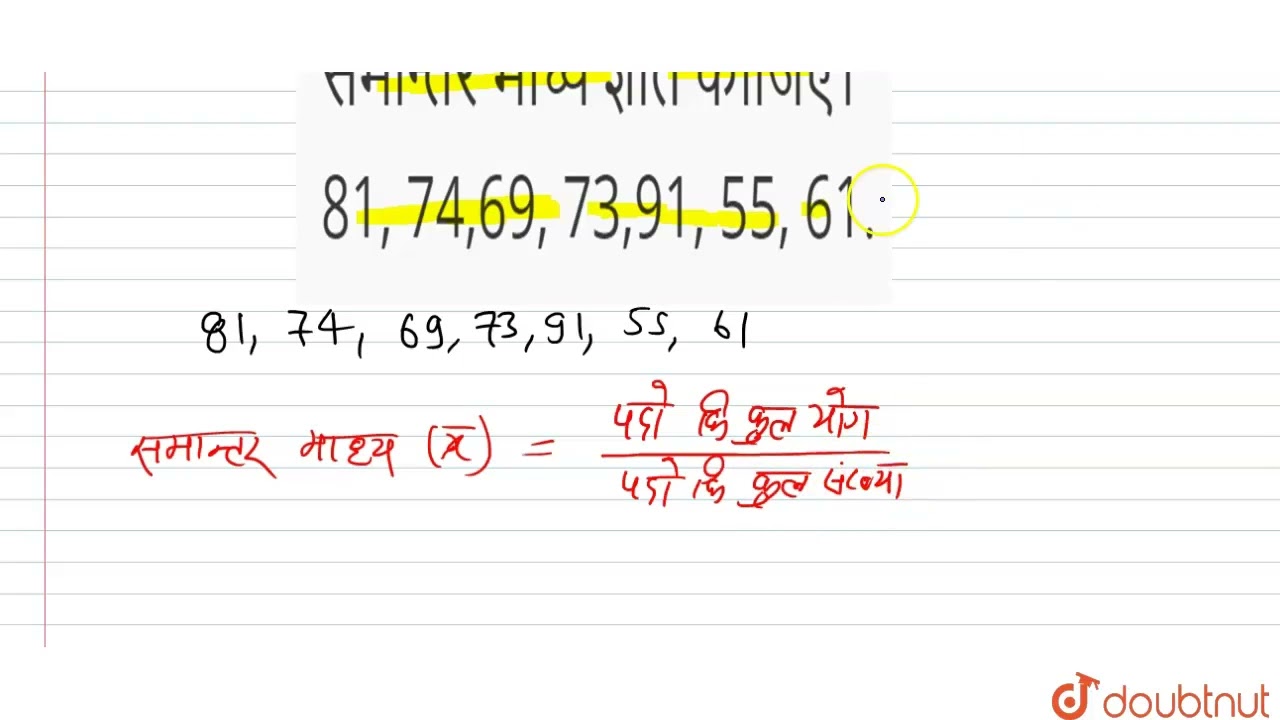 समान्तर माध्य ज्ञात कीजिए।
81, 74,69, 73,91, 55, 61.
81, 74, 69, 73, 91, 55, 61
समान्तर माध्य (x̄) = पदो कि कुल योग
पदो कि कुल संख्या
doubtnut